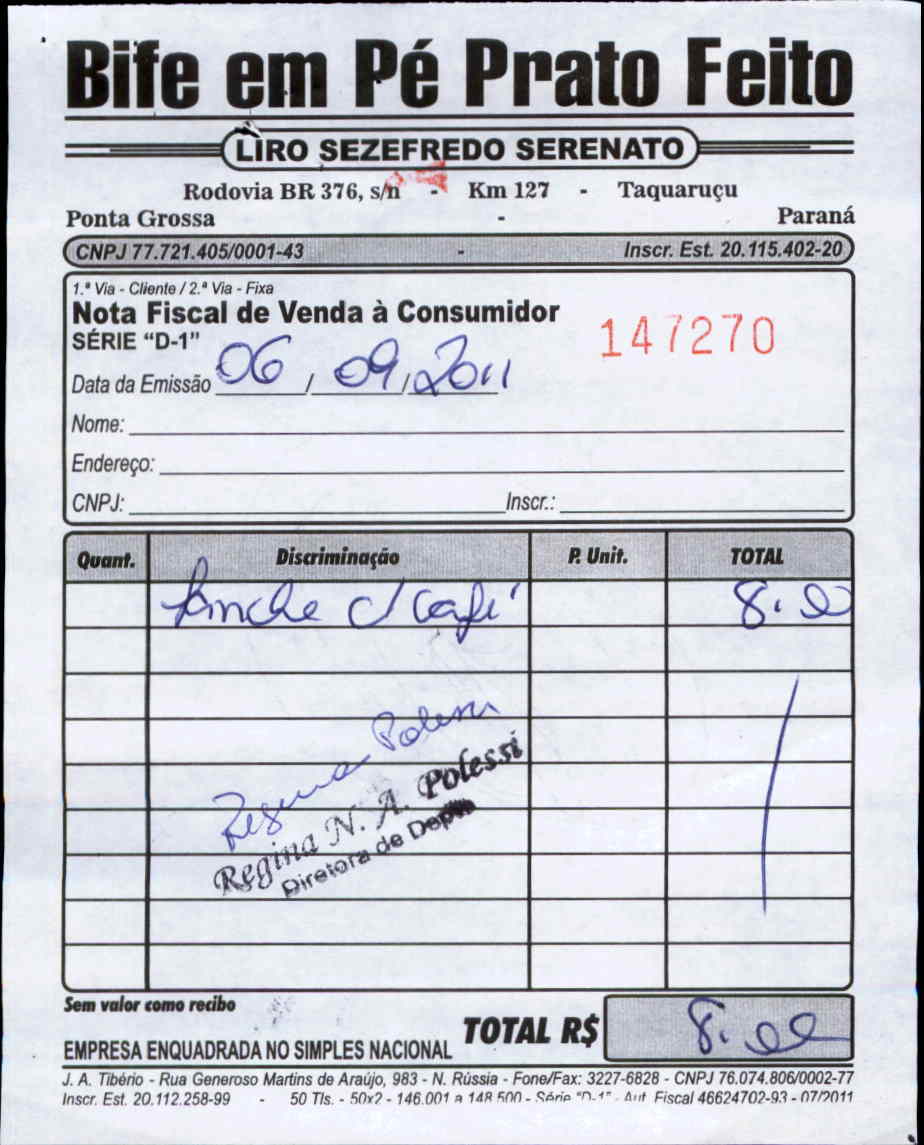 Bife em Pé Prato Feito
LIRO SEZEFREDO SERENATO
Rodovia BR 376, s/n - Km 127 - Taquaruçu
Ponta Grossa - Paraná
CNPJ 77.721.405/0001-43 - Inscr. Est. 20.115.402-20
1.ª Via - Cliente / 2.ª Via - Fixa
Nota Fiscal de Venda à Consumidor
SÉRIE "D-1" 147270
Data da Emissão 06 / 09 / 2011
Nome:
Endereço:
CNPJ: Inscr.:
Quant. Discriminação P. Unit. TOTAL
Lanche c/ Café 8.00
Regina Polessi
Regina N. A. Polessi
Diretora de Deptº
Sem valor como recibo
TOTAL R$ 8.00
EMPRESA ENQUADRADA NO SIMPLES NACIONAL
J. A. Tibério - Rua Generoso Martins de Araújo, 983 - N. Rússia - Fone/Fax: 3227-6828 - CNPJ 76.074.806/0002-77
Inscr. Est. 20.112.258-99 - 50 Tls. - 50x2 - 146.001 a 148.500 - Série "D-1" - Aut. Fiscal 46624702-93 - 07/2011